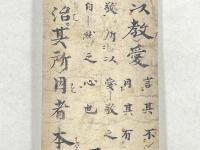 以教愛
言其不
因其有
所以愛敬之
自然之心也
治其所因者本